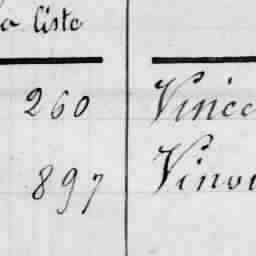 la liste
260 Vince
897 Vinoi